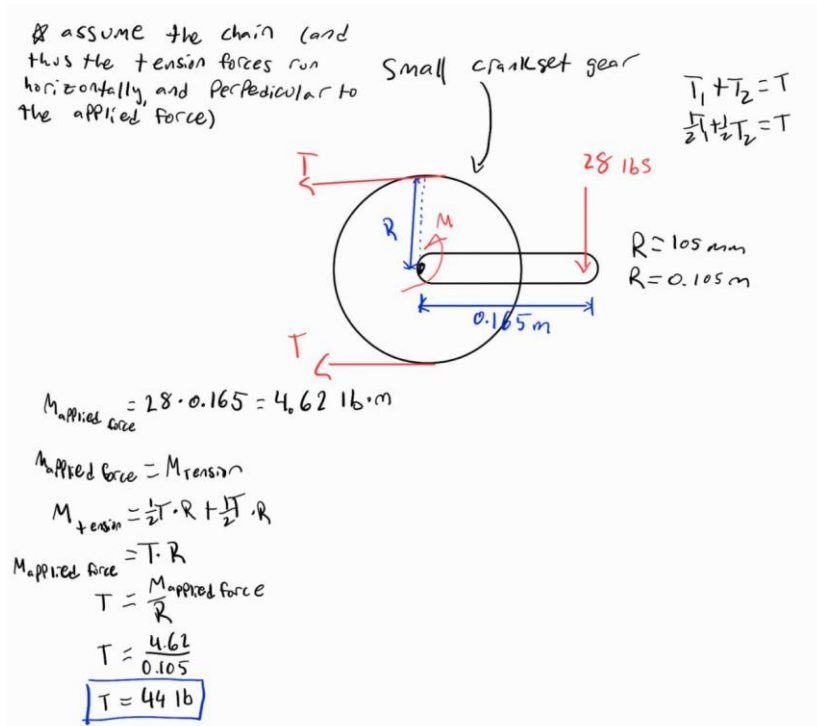 ☆ assume the chain (and
thus the tension forces run
horizontally, and Perpedicular to
the applied force)
Small crankset gear
T₁ + T₂ = T
½T₁ + ½T₂ = T
T
28 lbs
R
M
R = 105 mm
R = 0.105 m
0.165 m
T
M applied force = 28 · 0.165 = 4.62 lb·m
M applied force = M Tension
M tension = ½T · R + ½T · R
M applied force = T · R
T = M applied force / R
T = 4.62 / 0.105
T = 44 lb